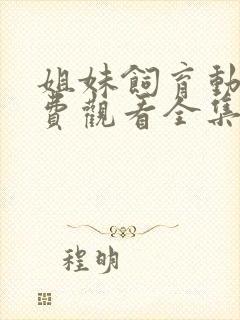 姐妹飼育動
費觀看全集
程明